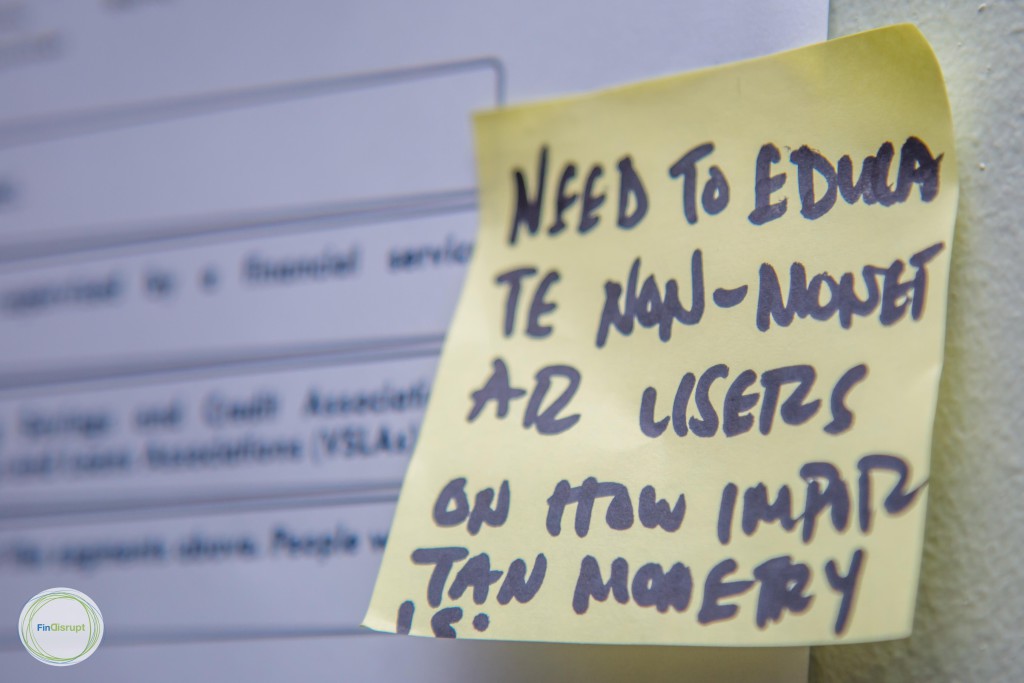 by a financial service
Savings and Credit Associati
and Loans Associations (VSLAs)
the segments above. People w
NEED TO EDUCA
TE NON-MONET
AR USERS
ON HOW IMPAR
TAN MONERY
IS.
FinDisrupt